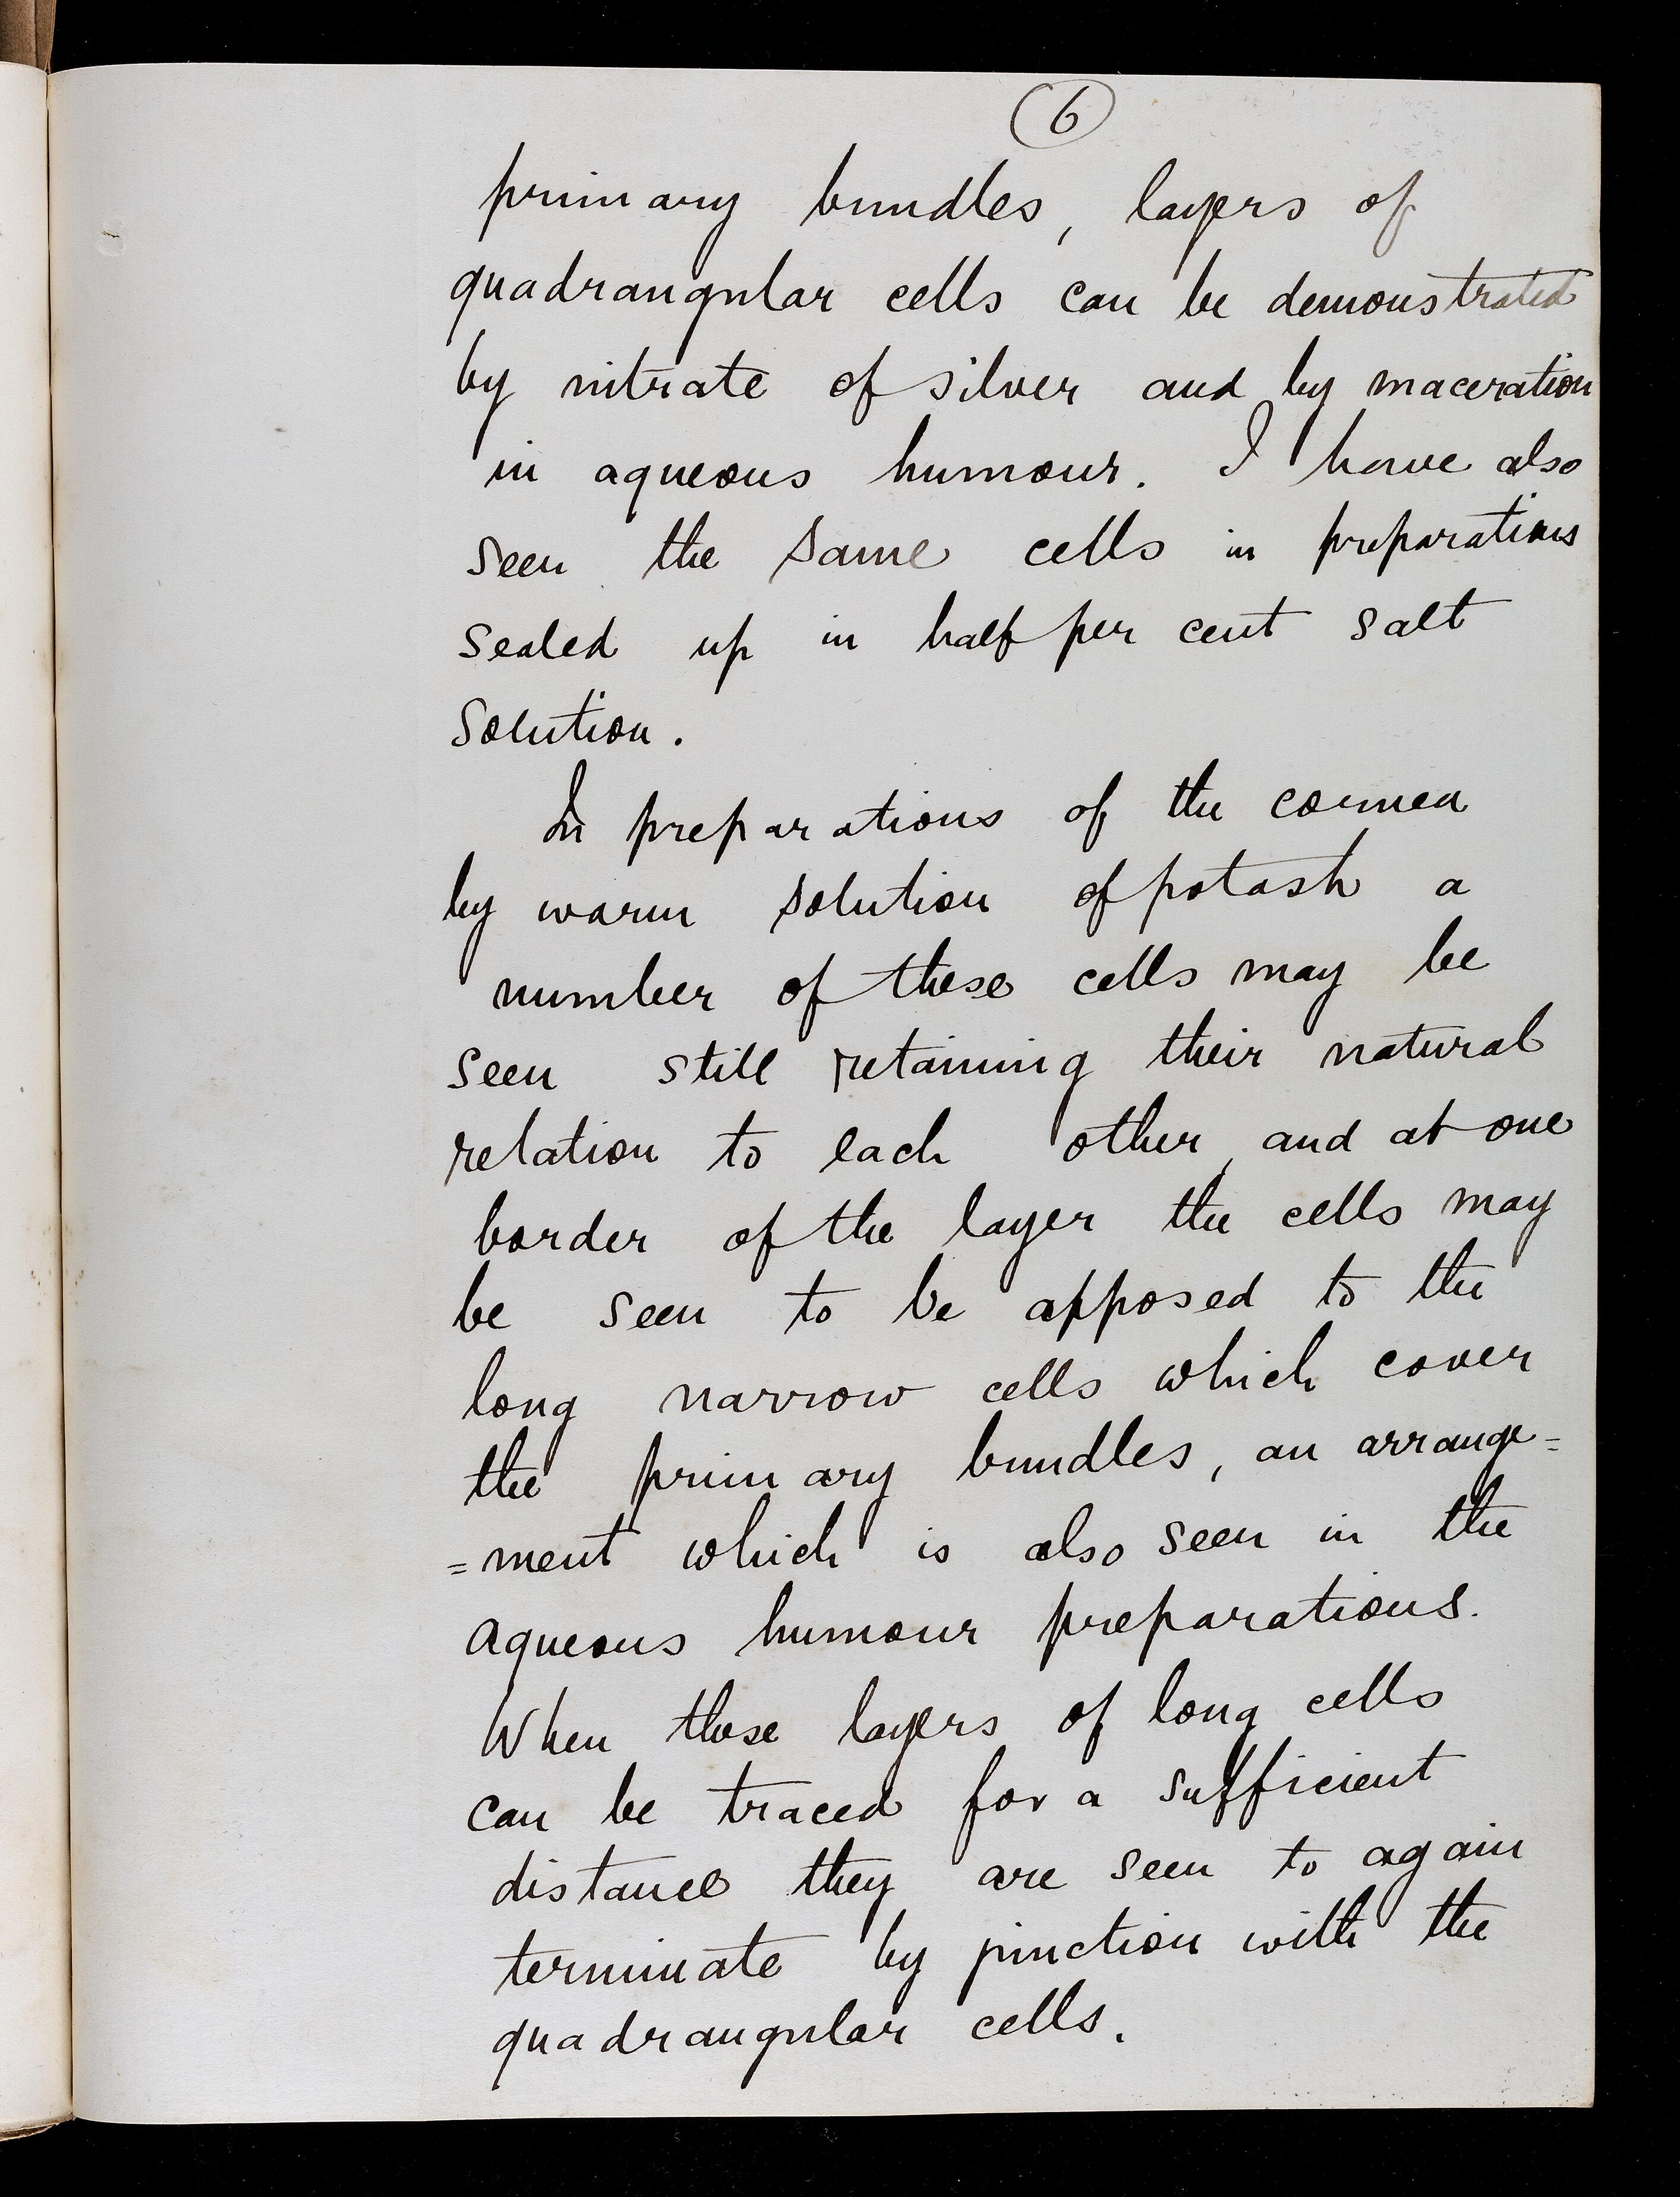 6
primary bundles, layers of
quadrangular cells can be demonstrated
by nitrate of silver and by maceration
in aqueous humour. I have also
seen the same cells in preparations
sealed up in half per cent salt
solution.
In preparations of the cornea
by warm solution of potash a
number of these cells may be
seen still retaining their natural
relation to each other, and at one
border of the layer the cells may
be seen to be apposed to the
long narrow cells which cover
the primary bundles, an arrange=
=ment which is also seen in the
aqueous humour preparations.
When these layers of long cells
can be traced for a sufficient
distance they are seen to again
terminate by junction with the
quadrangular cells.